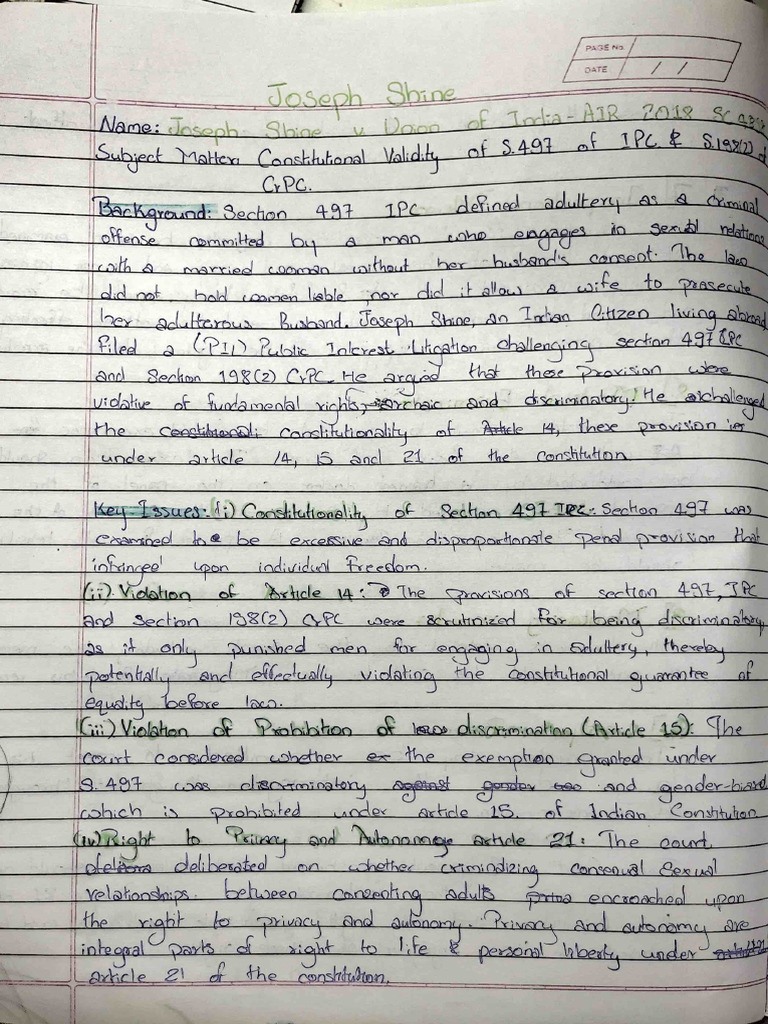 PAGE No.
DATE / /
Joseph Shine
Name: Joseph Shine v Union of India - AIR 2018 SC
Subject Matter: Constitutional Validity of S.497 of IPC & S.198(2) of
CrPC.
Background: Section 497 IPC defined adultery as a criminal
offense committed by a man who engages in sexual relations
with a married woman without her husband's consent. The law
did not hold women liable, nor did it allow a wife to prosecute
her adulterous Busband. Joseph Shine, an Indian Citizen living abroad
filed a (PIL) Public Interest Litigation challenging section 497 IPC
and Section 198(2) CrPC. He argued that these provision were
violative of fundamental rights, archaic and discriminatory. He challenged
the constitutionality of Article 14, these provision
under article 14, 15 and 21 of the constitution.
Key Issues: (i) Constitutionality of Section 497 IPC: Section 497 was
examined to be excessive and disproportionate penal provision that
infringe upon individual freedom.
(ii) Violation of Article 14: The provisions of section 497, IPC
and section 198(2) CrPC were scrutinized for being discriminatory,
as it only punished men for engaging in adultery, thereby
potentially and effectually violating the constitutional guarantee of
equality before law.
(iii) Violation of Prohibition of discrimination (Article 15): The
court considered whether the exemption granted under
S.497 was discriminatory against gender and gender-biard
which is prohibited under article 15. of Indian Constitution
(iv) Right to Privacy and Autonomy article 21: The court
deliberated on whether criminalizing consenual sexual
relationships between consenting adults encroached upon
the right to privacy and autonomy. Privacy and autonomy are
integral parts of right to life & personal liberty under
article 21 of the constitution.